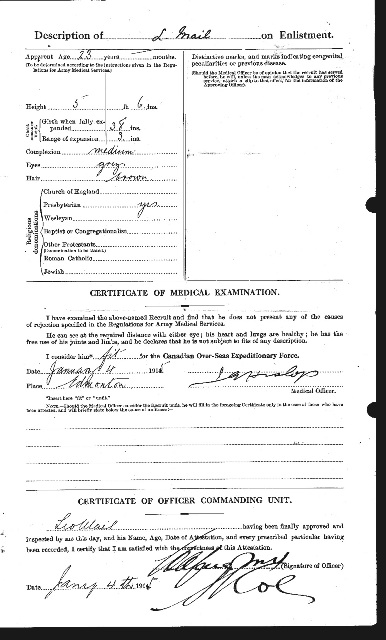 Description of L Mail on Enlistment.
Apparent Age 23 years months.
(To be determined according to the instructions given in the Regulations for Army Medical Services.)
Height 5 ft. 6 ins.
Chest measurement
Girth when fully expanded 38 ins.
Range of expansion 3 ins.
Complexion medium
Eyes grey
Hair brown
Religious denominations
Church of England
Presbyterian yes
Wesleyan
Baptist or Congregationalist
Other Protestants
(Denomination to be stated.)
Roman Catholic
Jewish
Distinctive marks, and marks indicating congenital peculiarities or previous disease.
(Should the Medical Officer be of opinion that the recruit has served before, he will, unless the man acknowledges to any previous service, attach a slip to that effect, for the information of the Approving Officer).
CERTIFICATE OF MEDICAL EXAMINATION.
I have examined the above-named Recruit and find that he does not present any of the causes
of rejection specified in the Regulations for Army Medical Services.
He can see at the required distance with either eye; his heart and lungs are healthy; he has the
free use of his joints and limbs, and he declares that he is not subject to fits of any description.
I consider him* fit for the Canadian Over-Seas Expeditionary Force.
Date January 4 1915
Place Edmonton
Medical Officer.
*Insert here "fit" or "unfit."
NOTE.—Should the Medical Officer consider the Recruit unfit, he will fill in the foregoing Certificate only in the case of those who have been attested, and will briefly state below the cause of unfitness:—
CERTIFICATE OF OFFICER COMMANDING UNIT.
Leo Mail having been finally approved and
inspected by me this day, and his Name, Age, Date of Attestation, and every prescribed particular having
been recorded, I certify that I am satisfied with the correctness of this Attestation.
(Signature of Officer)
Col
Date Jany 4th 1915